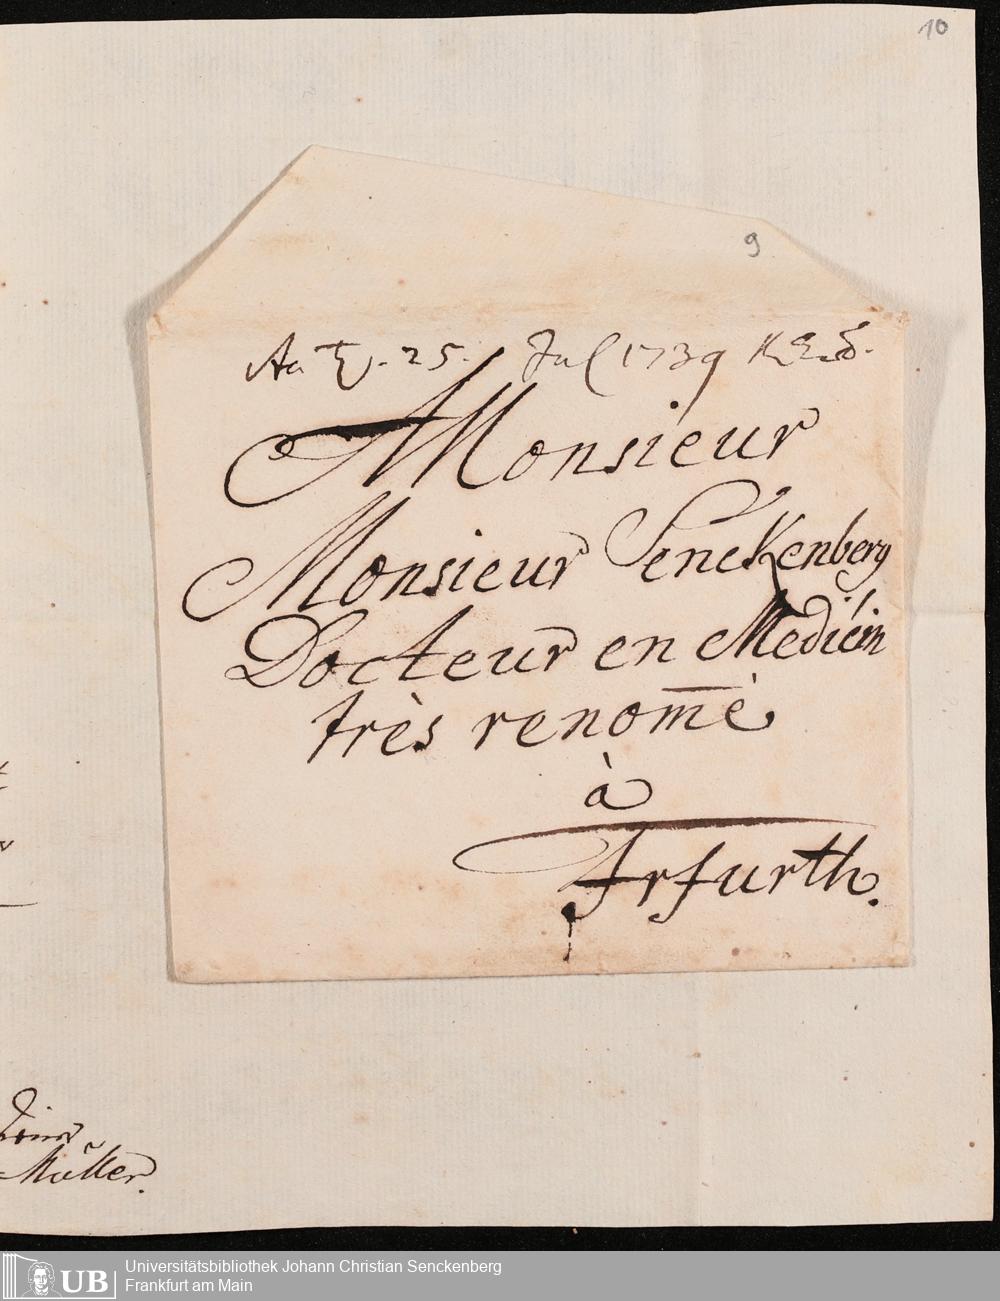 10
9
25. Jul 1739
A Monsieur
Monsieur Senckenberg
Docteur en Medicin
très renom̅é
à
Erfurth.
Müller.
UB Universitätsbibliothek Johann Christian Senckenberg
Frankfurt am Main